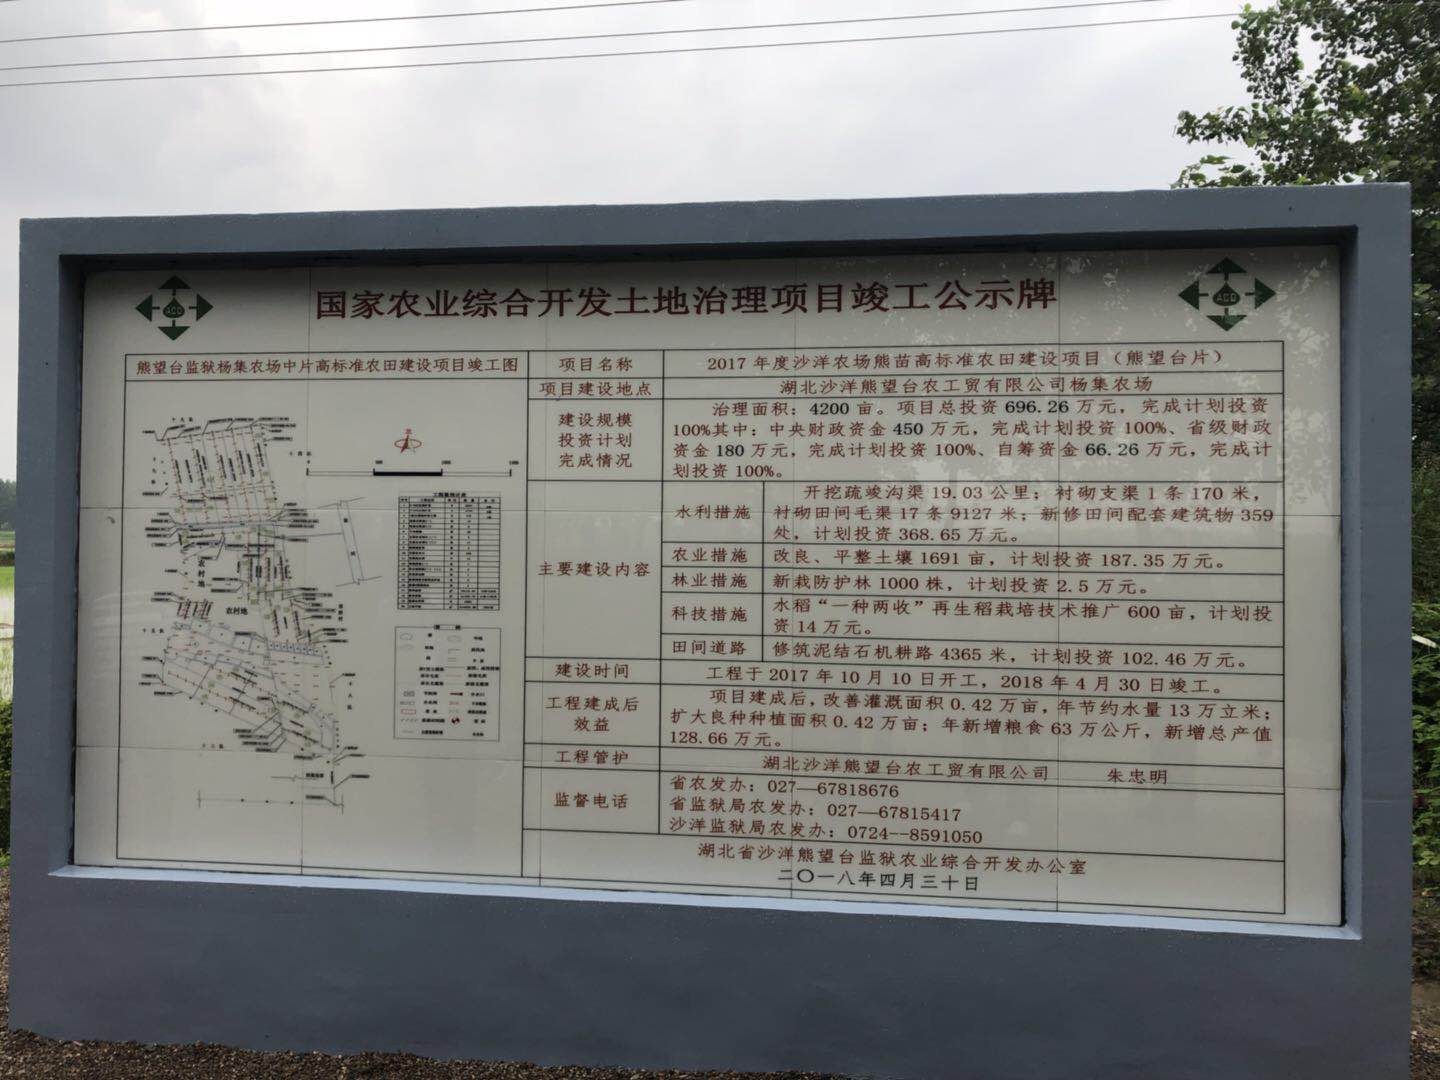 国家农业综合开发土地治理项目竣工公示牌
ACD
ACD
熊望台监狱杨集农场中片高标准农田建设项目竣工图
农村地
农村地
项目名称
2017年度沙洋农场熊苗高标准农田建设项目（熊望台片）
项目建设地点
湖北沙洋熊望台农工贸有限公司杨集农场
建设规模
投资计划
完成情况
治理面积：4200亩。项目总投资696.26万元，完成计划投资
100%其中：中央财政资金450万元，完成计划投资100%、省级财政
资金180万元，完成计划投资100%、自筹资金66.26万元，完成计
划投资100%。
主要建设内容
水利措施
开挖疏竣沟渠19.03公里；衬砌支渠1条170米，
衬砌田间毛渠17条9127米；新修田间配套建筑物359
处，计划投资368.65万元。
农业措施
改良、平整土壤1691亩，计划投资187.35万元。
林业措施
新栽防护林1000株，计划投资2.5万元。
科技措施
水稻“一种两收”再生稻栽培技术推广600亩，计划投
资14万元。
田间道路
修筑泥结石机耕路4365米，计划投资102.46万元。
建设时间
工程于2017年10月10日开工，2018年4月30日竣工。
工程建成后
效益
项目建成后，改善灌溉面积0.42万亩，年节约水量13万立米；
扩大良种种植面积0.42万亩；年新增粮食63万公斤，新增总产值
128.66万元。
工程管护
湖北沙洋熊望台农工贸有限公司 朱忠明
监督电话
省农发办：027—67818676
省监狱局农发办：027—67815417
沙洋监狱局农发办：0724--8591050
湖北省沙洋熊望台监狱农业综合开发办公室
二〇一八年四月三十日